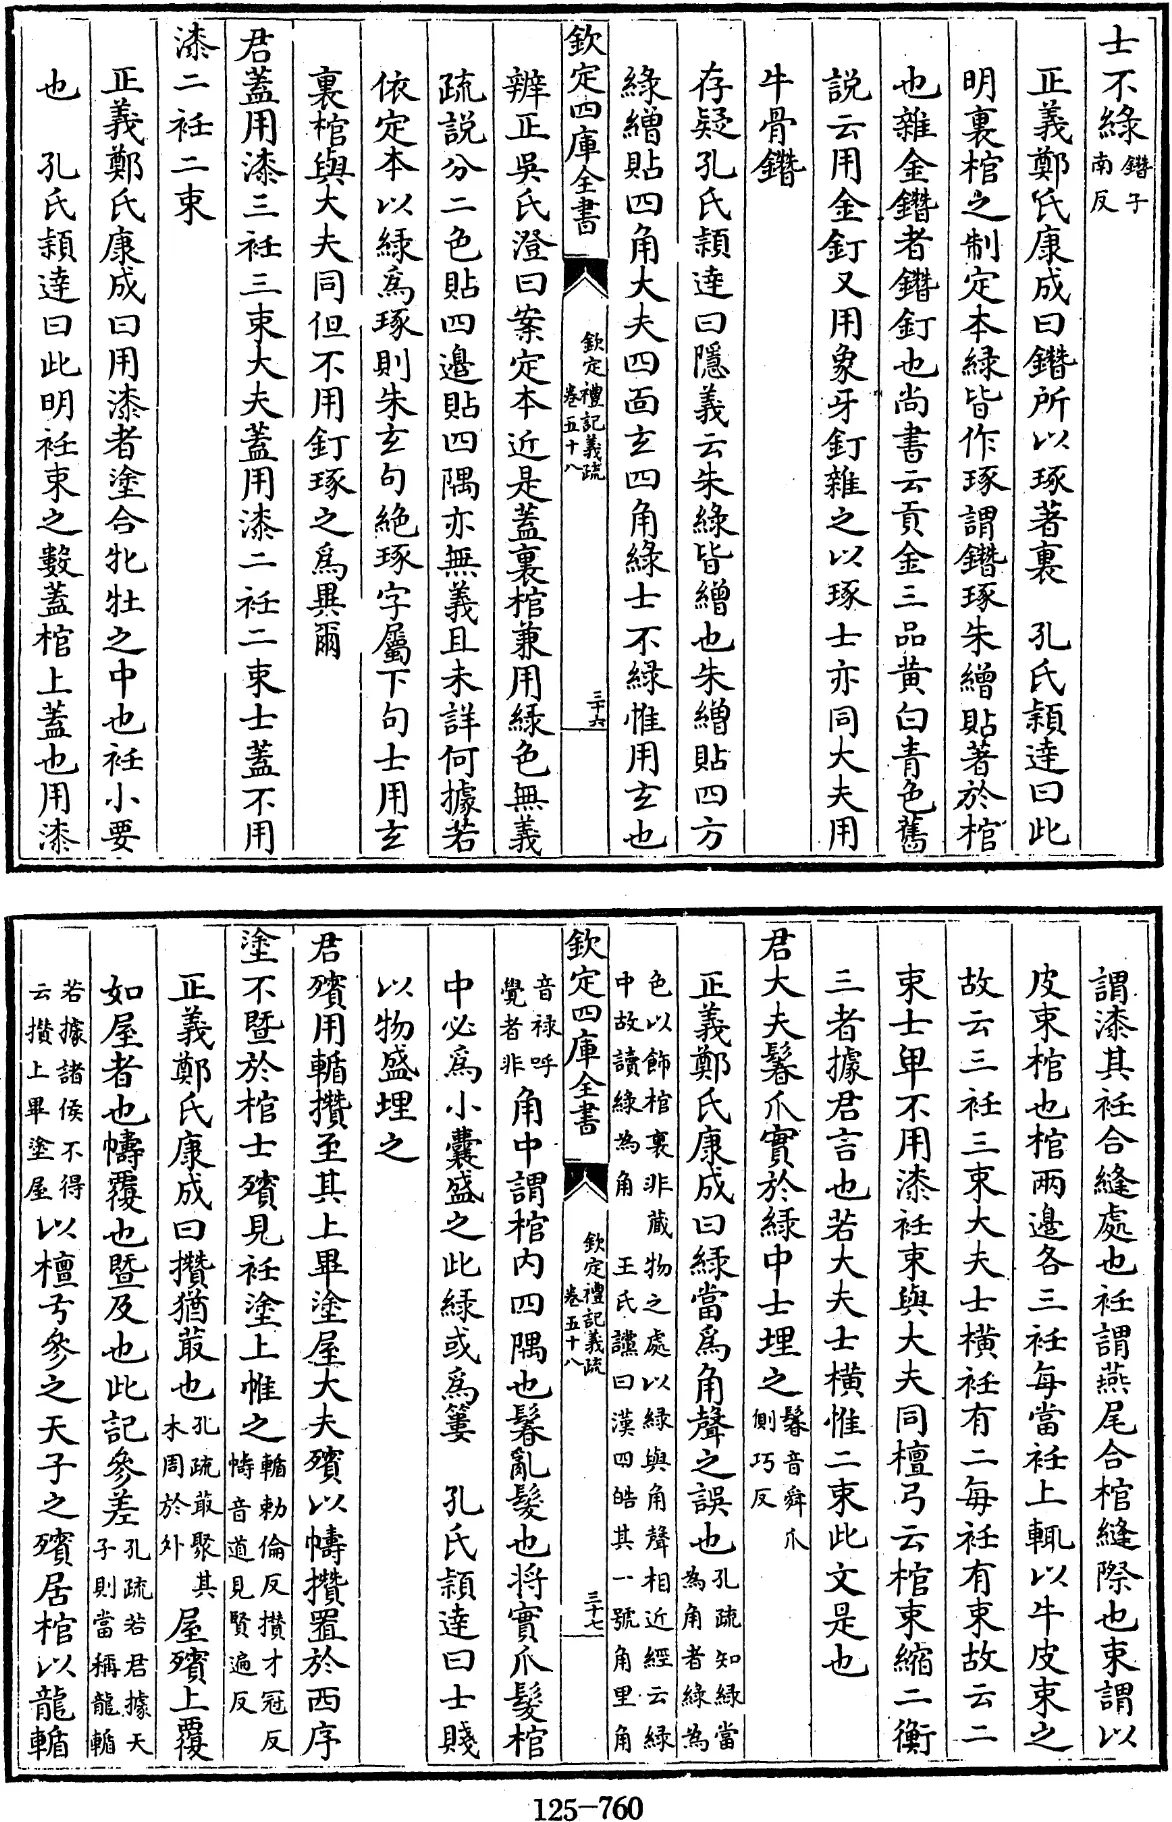 士不緑鐕子南反
正義鄭氏康成曰鐕所以琢著裏　孔氏穎達曰此
明裏棺之制定本緑皆作琢謂鐕琢朱繒貼著於棺
也雜金鐕者鐕釘也尚書云貢金三品黄白青色舊
説云用金釘又用象牙釘雜之以琢士亦同大夫用
牛骨鐕
存疑孔氏穎達曰隱義云朱緑皆繒也朱繒貼四方
緑繒貼四角大夫四面玄四角緑士不緑惟用玄也
欽定四庫全書
欽定禮記義疏
卷五十八
三十六
辨正吳氏澄曰案定本近是蓋裏棺兼用緑色無義
疏説分二色貼四邉貼四隅亦無義且未詳何據若
依定本以緑為琢則朱玄句絶琢字屬下句士用玄
裏棺與大夫同但不用釘琢之為異爾
君蓋用漆三衽三束大夫蓋用漆二衽二束士蓋不用
漆二衽二束
正義鄭氏康成曰用漆者塗合牝牡之中也衽小要
也　孔氏穎達曰此明衽束之數蓋棺上蓋也用漆
謂漆其衽合縫處也衽謂燕尾合棺縫際也束謂以
皮束棺也棺兩邉各三衽每當衽上輒以牛皮束之
故云三衽三束大夫士横衽有二每衽有束故云二
束士卑不用漆衽束與大夫同檀弓云棺束縮二衡
三者據君言也若大夫士横惟二束此文是也
君大夫鬊爪實於緑中士埋之鬊音舜爪側巧反
正義鄭氏康成曰緑當為角聲之誤也孔疏知緑當為角者緑為
色以飾棺裏非藏物之處以緑與角聲相近經云緑
中故讀緑為角　王氏讜曰漢四皓其一號角里角
欽定四庫全書
欽定禮記義疏
卷五十八
三十七
音禄呼覺者非角中謂棺内四隅也鬊亂髮也将實爪髮棺
中必為小囊盛之此緑或為簍　孔氏穎達曰士賤
以物盛埋之
君殯用輴攢至其上畢塗屋大夫殯以幬攢置於西序
塗不暨於棺士殯見衽塗上帷之輴勅倫反攢才冠反幬音道見賢遍反
正義鄭氏康成曰攢猶菆也孔疏菆聚其木周於外屋殯上覆
如屋者也幬覆也暨及也此記參差孔疏若君據天子則當稱龍輴
若據諸侯不得云攢上畢塗屋以檀弓參之天子之殯居棺以龍輴
125-760